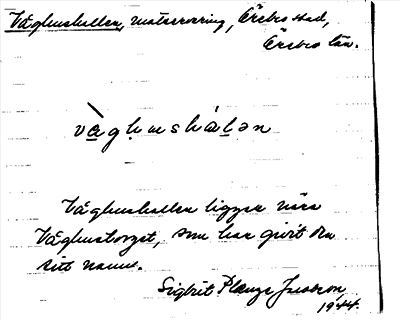 Våghushallen, matservering, Örebro stad,
Örebro län.
vå̀g̣hushálạən
Våghushallen ligger nära
Våghustorget, som har givit den
sitt namn.
Sigbrit Plænge Jacobson,
1944.